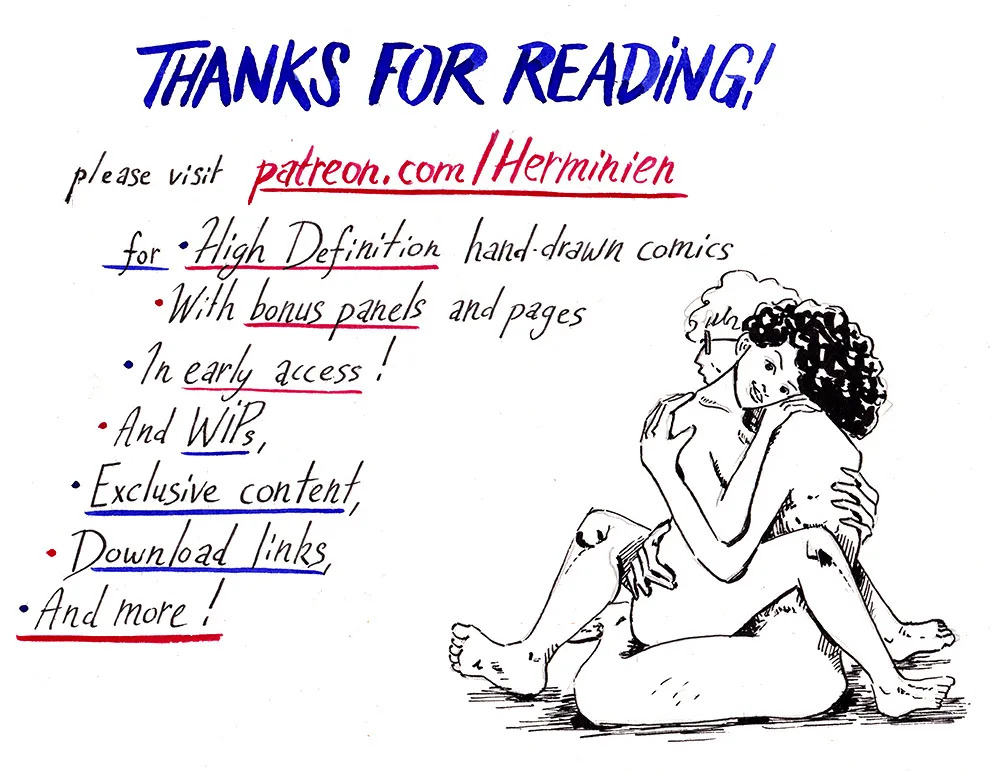 THANKS FOR READING!
please visit patreon.com/Herminien
for • High Definition hand-drawn comics
• With bonus panels and pages
• In early access!
• And WiPs,
• Exclusive content,
• Download links,
• And more!